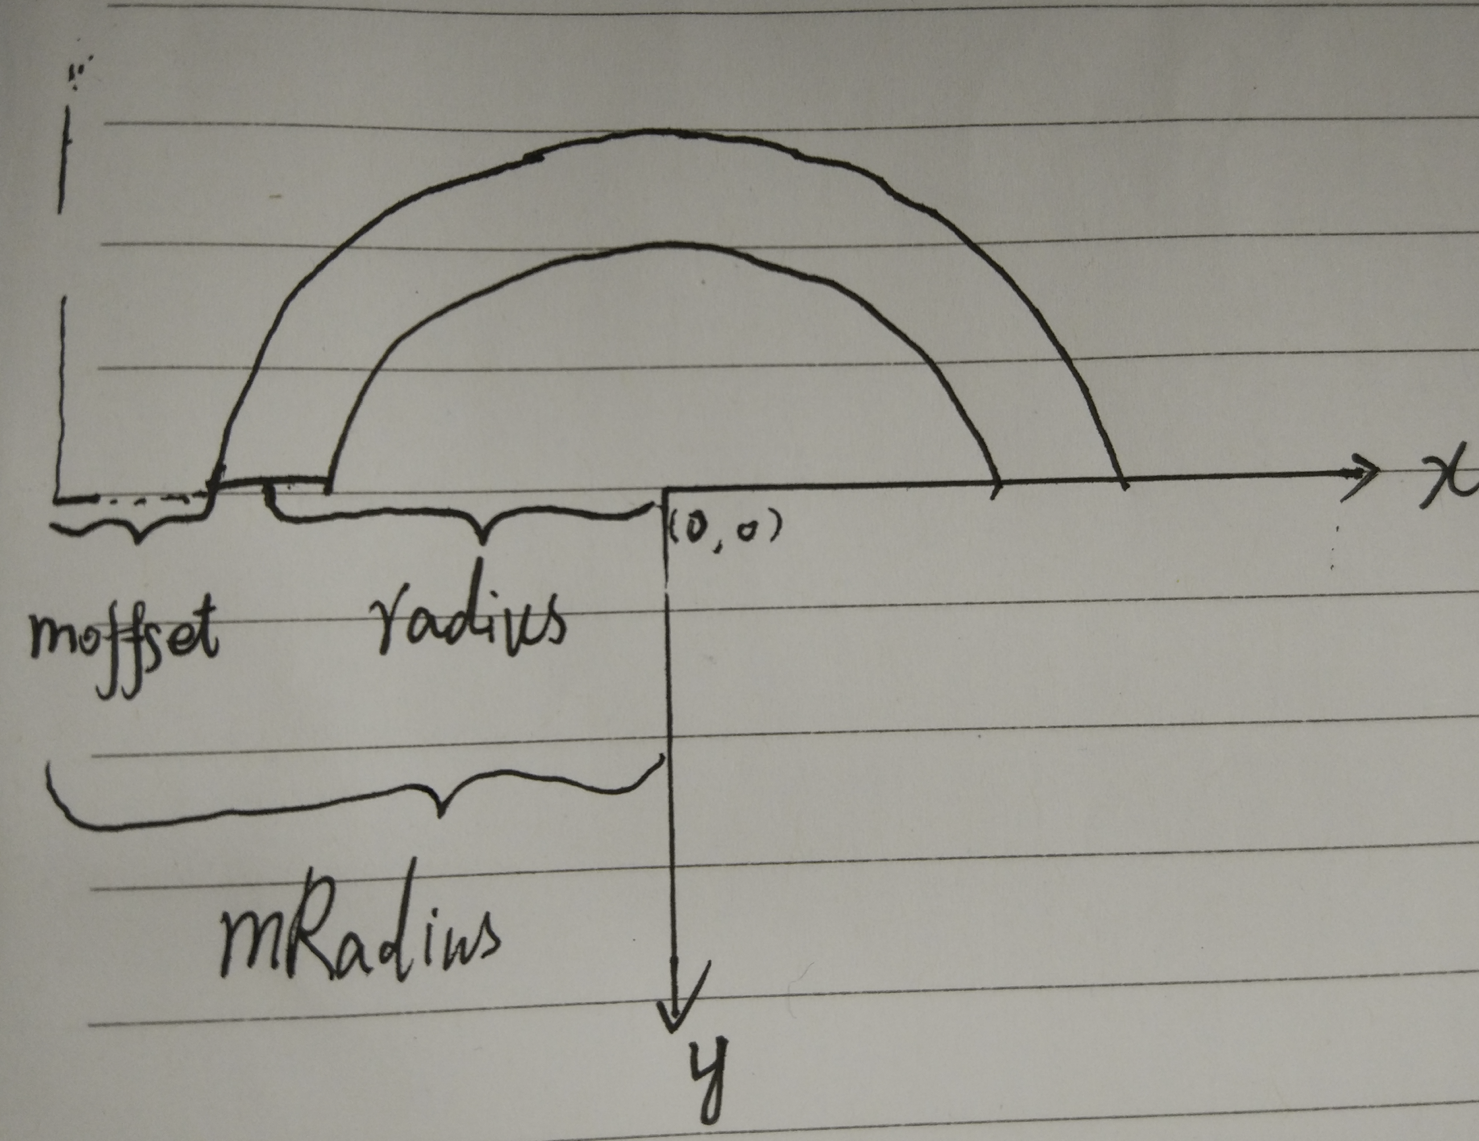 x
(0,0)
moffset radius
mRadius
y